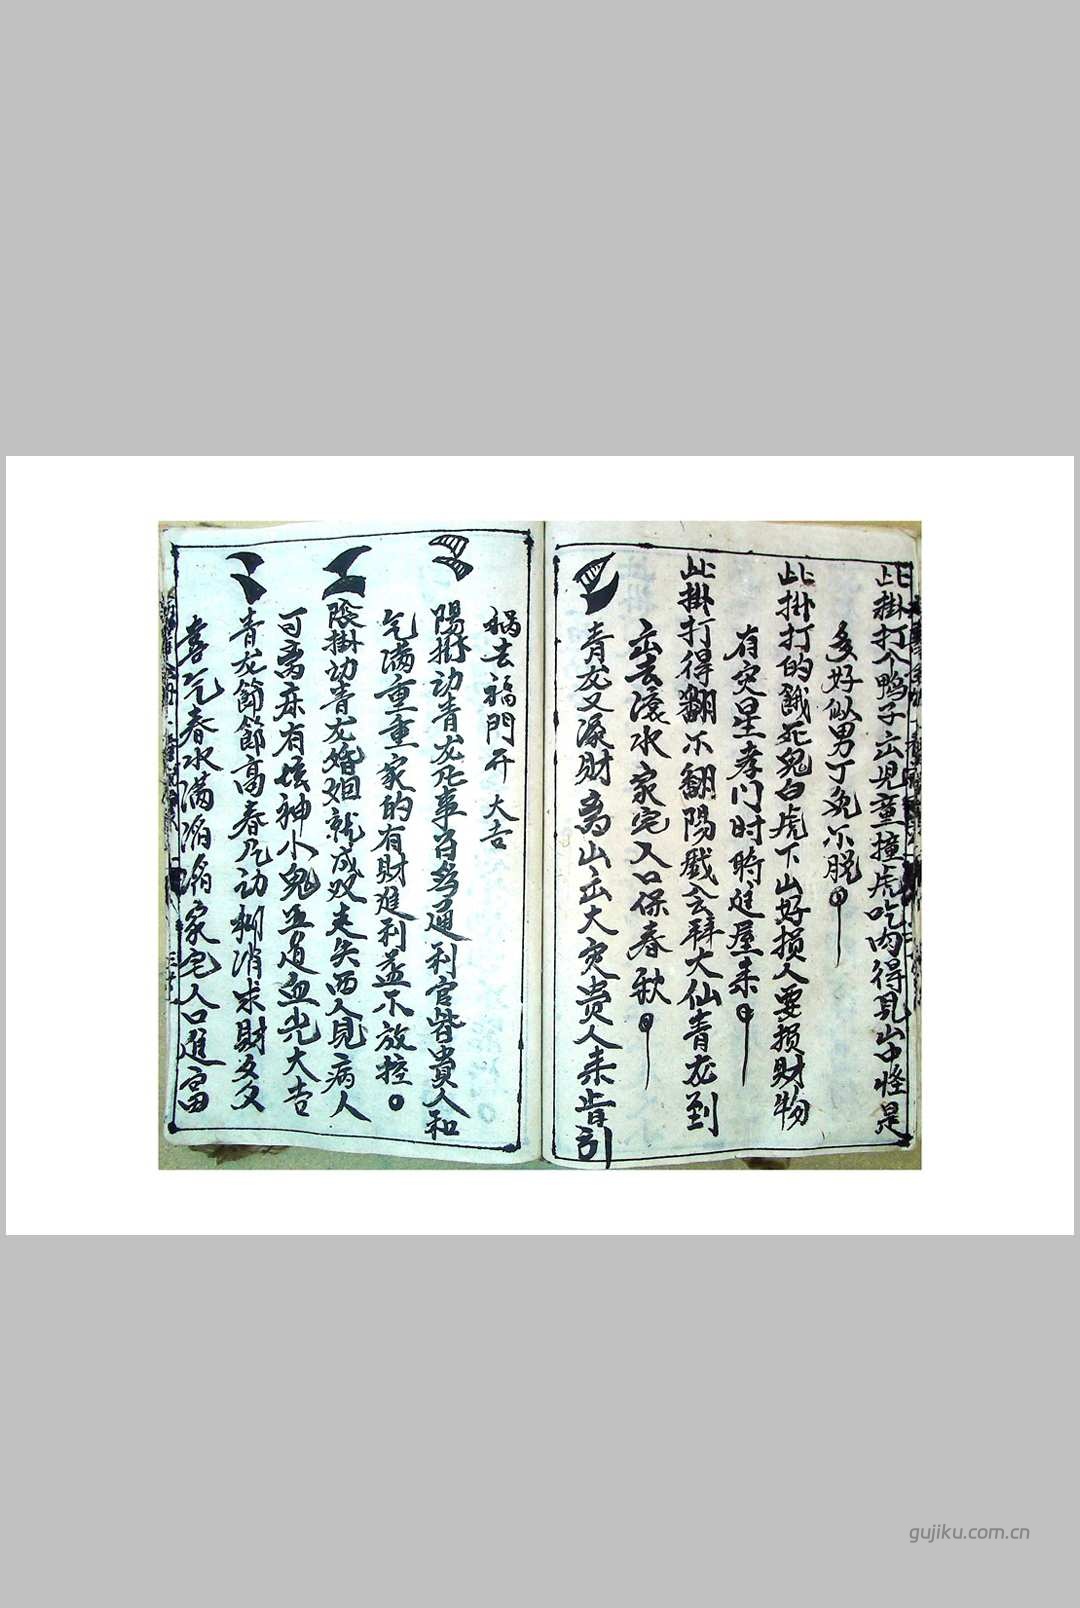 此掛打个鸭子出児童撞虎吃肉得見山中怪是
多好似男丁免不脱
此掛打的餓死鬼白虎下山好损人要损財物
有灾星孝门时時進屋来
此掛打得翻不翻陽戲去拜大仙青龙到
出去滾水家宅人口保春秋
青龙又滚財离山出大灾贵人来指引
祸去福門开 大吉
陽掛动青龙凡事百為通利官皆貴人和
气满重重家的有財進利益不放控。
陰掛动青龙婚姻就成双走失西人見病人
可离床有神小鬼血道血光大吉
青龙節節高春风动消求財又又
喜气春水满滔滔家宅人口進富
gujiku.com.cn